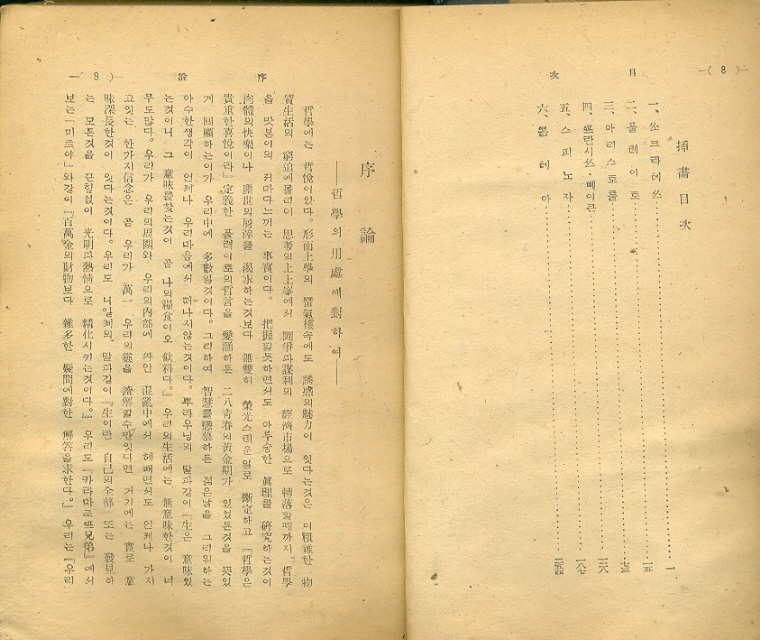 —( 8 )—
目次
揷畵目次
一、쏘크라테쓰……一
二、풀레이토……
三、아리스토틀……
四、프란시쓰・뻬이콘……
五、스피노자……
六、볼테아……
序論
—( 9 )—
序論
——哲學의 用處에 對하여——
哲學에는 哲悅이있다。形而上學의 蜃氣樓속에도 誘惑의魅力이 잇다는것은 이粗雜한 物
質生活의 窮迫에몰리어 思考의上上峯에서 鬪爭과謀利의 經濟市場으로 墮落될때까지 哲學
을 맛본이의 저마다느끼는 事實이다。
肉體의快樂이나 塵世의 渴求하는것보다 無雙히 榮光스러운일로 斷定하고『哲學은
貴重한喜悅이라』定義한 풀레이토의哲言을 愛誦하든 二八靑春의黃金期가 있었든것을 못잊
게 回顧하는이가 우리中에 多數일것이다。그리하여 智慧를戀慕하든 젊은날을 그리워하는
아수한생각이 언제나 우리마음에서 떠나지않는것이다。뿌라우닝의 말과같이『生은 意味있
는것이니 그 意味를찾는것이 곧 나의糧食이오 飮料다。』우리의生活에는 無意味한것이 너
무도많다。우리가 우리의周圍와 우리의內部에 싸인 混亂中에서 헤매면서도 언제나 가지
고잇는 한가지信念은 곧 우리가 萬一 우리의靈을 잇다면 거기에는 實로 意
味深長한것이 잇다는것이다。우리도 니일체의 말과같이『生이란 自己의全部 또는 發見하
는 모든것을 끈힘없이 光明과熱情으로 精化시키는것이다。』우리도『카라마조프兄弟』에서
보는『미트야』와같이『百萬金의財物보다 雜多한 疑問에對한 解答을求한다。』우리는『우리